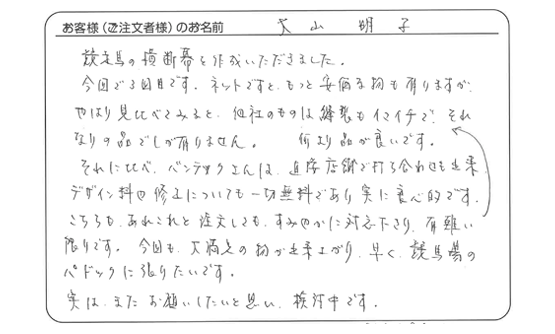 お客様（ご注文者様）のお名前 大山 明子
競走馬の横断幕を作成いただきました。
今回で3回目です。ネットですと、もっと安価な物も有りますが、
やはり見比べてみると、他社のものは縫製もイマイチで、それ
なりの品でしか有りません。 何より品が良いです。
それに比べ、バンテックさんは、直接店舗で打ち合わせも出来、
デザイン料や修正についても一切無料であり実に良心的です。
こちらも、あれこれと注文しても、すみやかに対応下さり、有難い
限りです。今回も、大満足の物が出来上がり、早く、競馬場の
パドックに張りたいです。
実は、また お願いしたいと思い、検討中です。